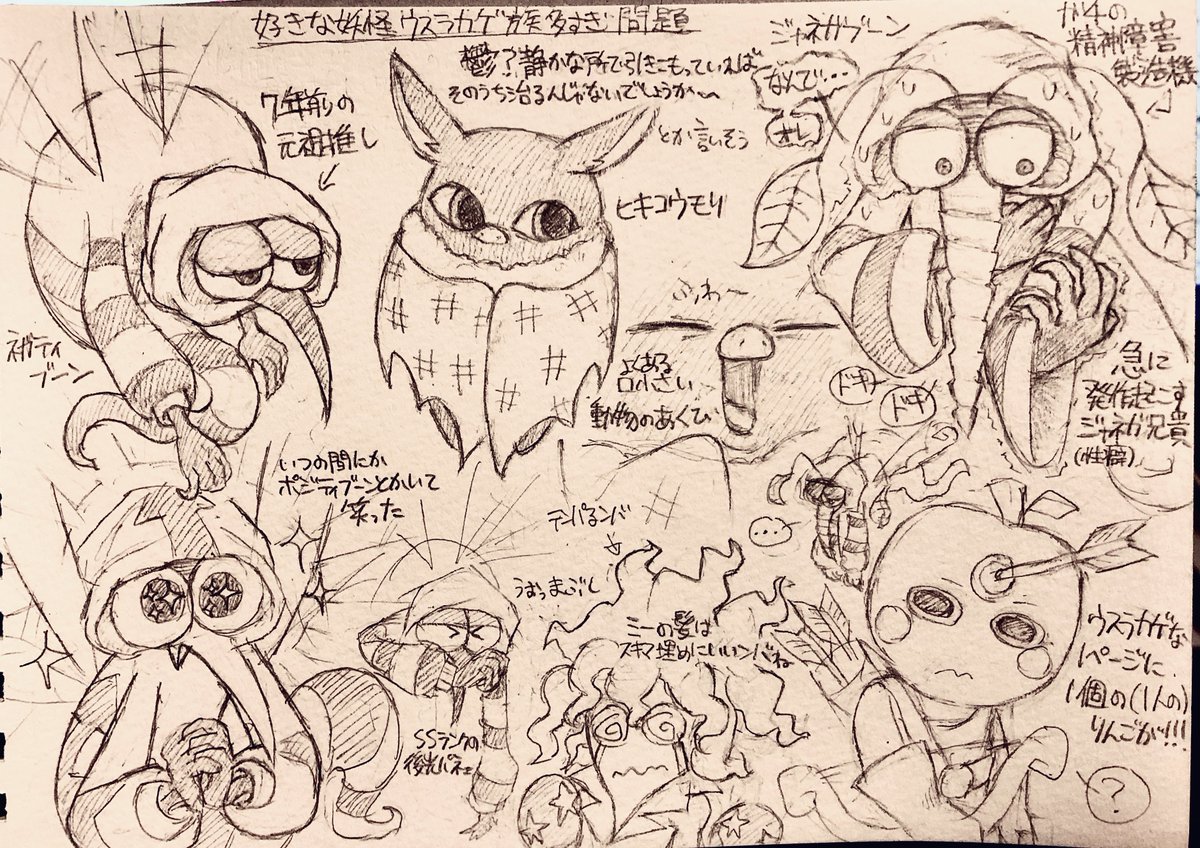 好きな妖怪ウスラカゲ族多すぎ問題
7年前の
元祖推し
ネガティ
ブーン
鬱?静かな所で引きこもっていれば
そのうち治るんじゃないでしょうか〜
とか言いそう
ヒキコウモリ
ジャネガブーン
なんで…
精神障害
製造機
ふわ〜
よくある
口小さい
動物のあくび
ドキ
ドキ
急に
発作起こす
ジャネガ兄貴
(性癖)
いつの間にか
ポジティブーンとかいて
笑った
テンパルンバ
うおっまぶし
SSランクの
後光パネェ
ミーの髪は
スキマ埋めにいいンバね
…
ウスラカゲな
1ページに
1個の(1人の)
りんごが!!!
?